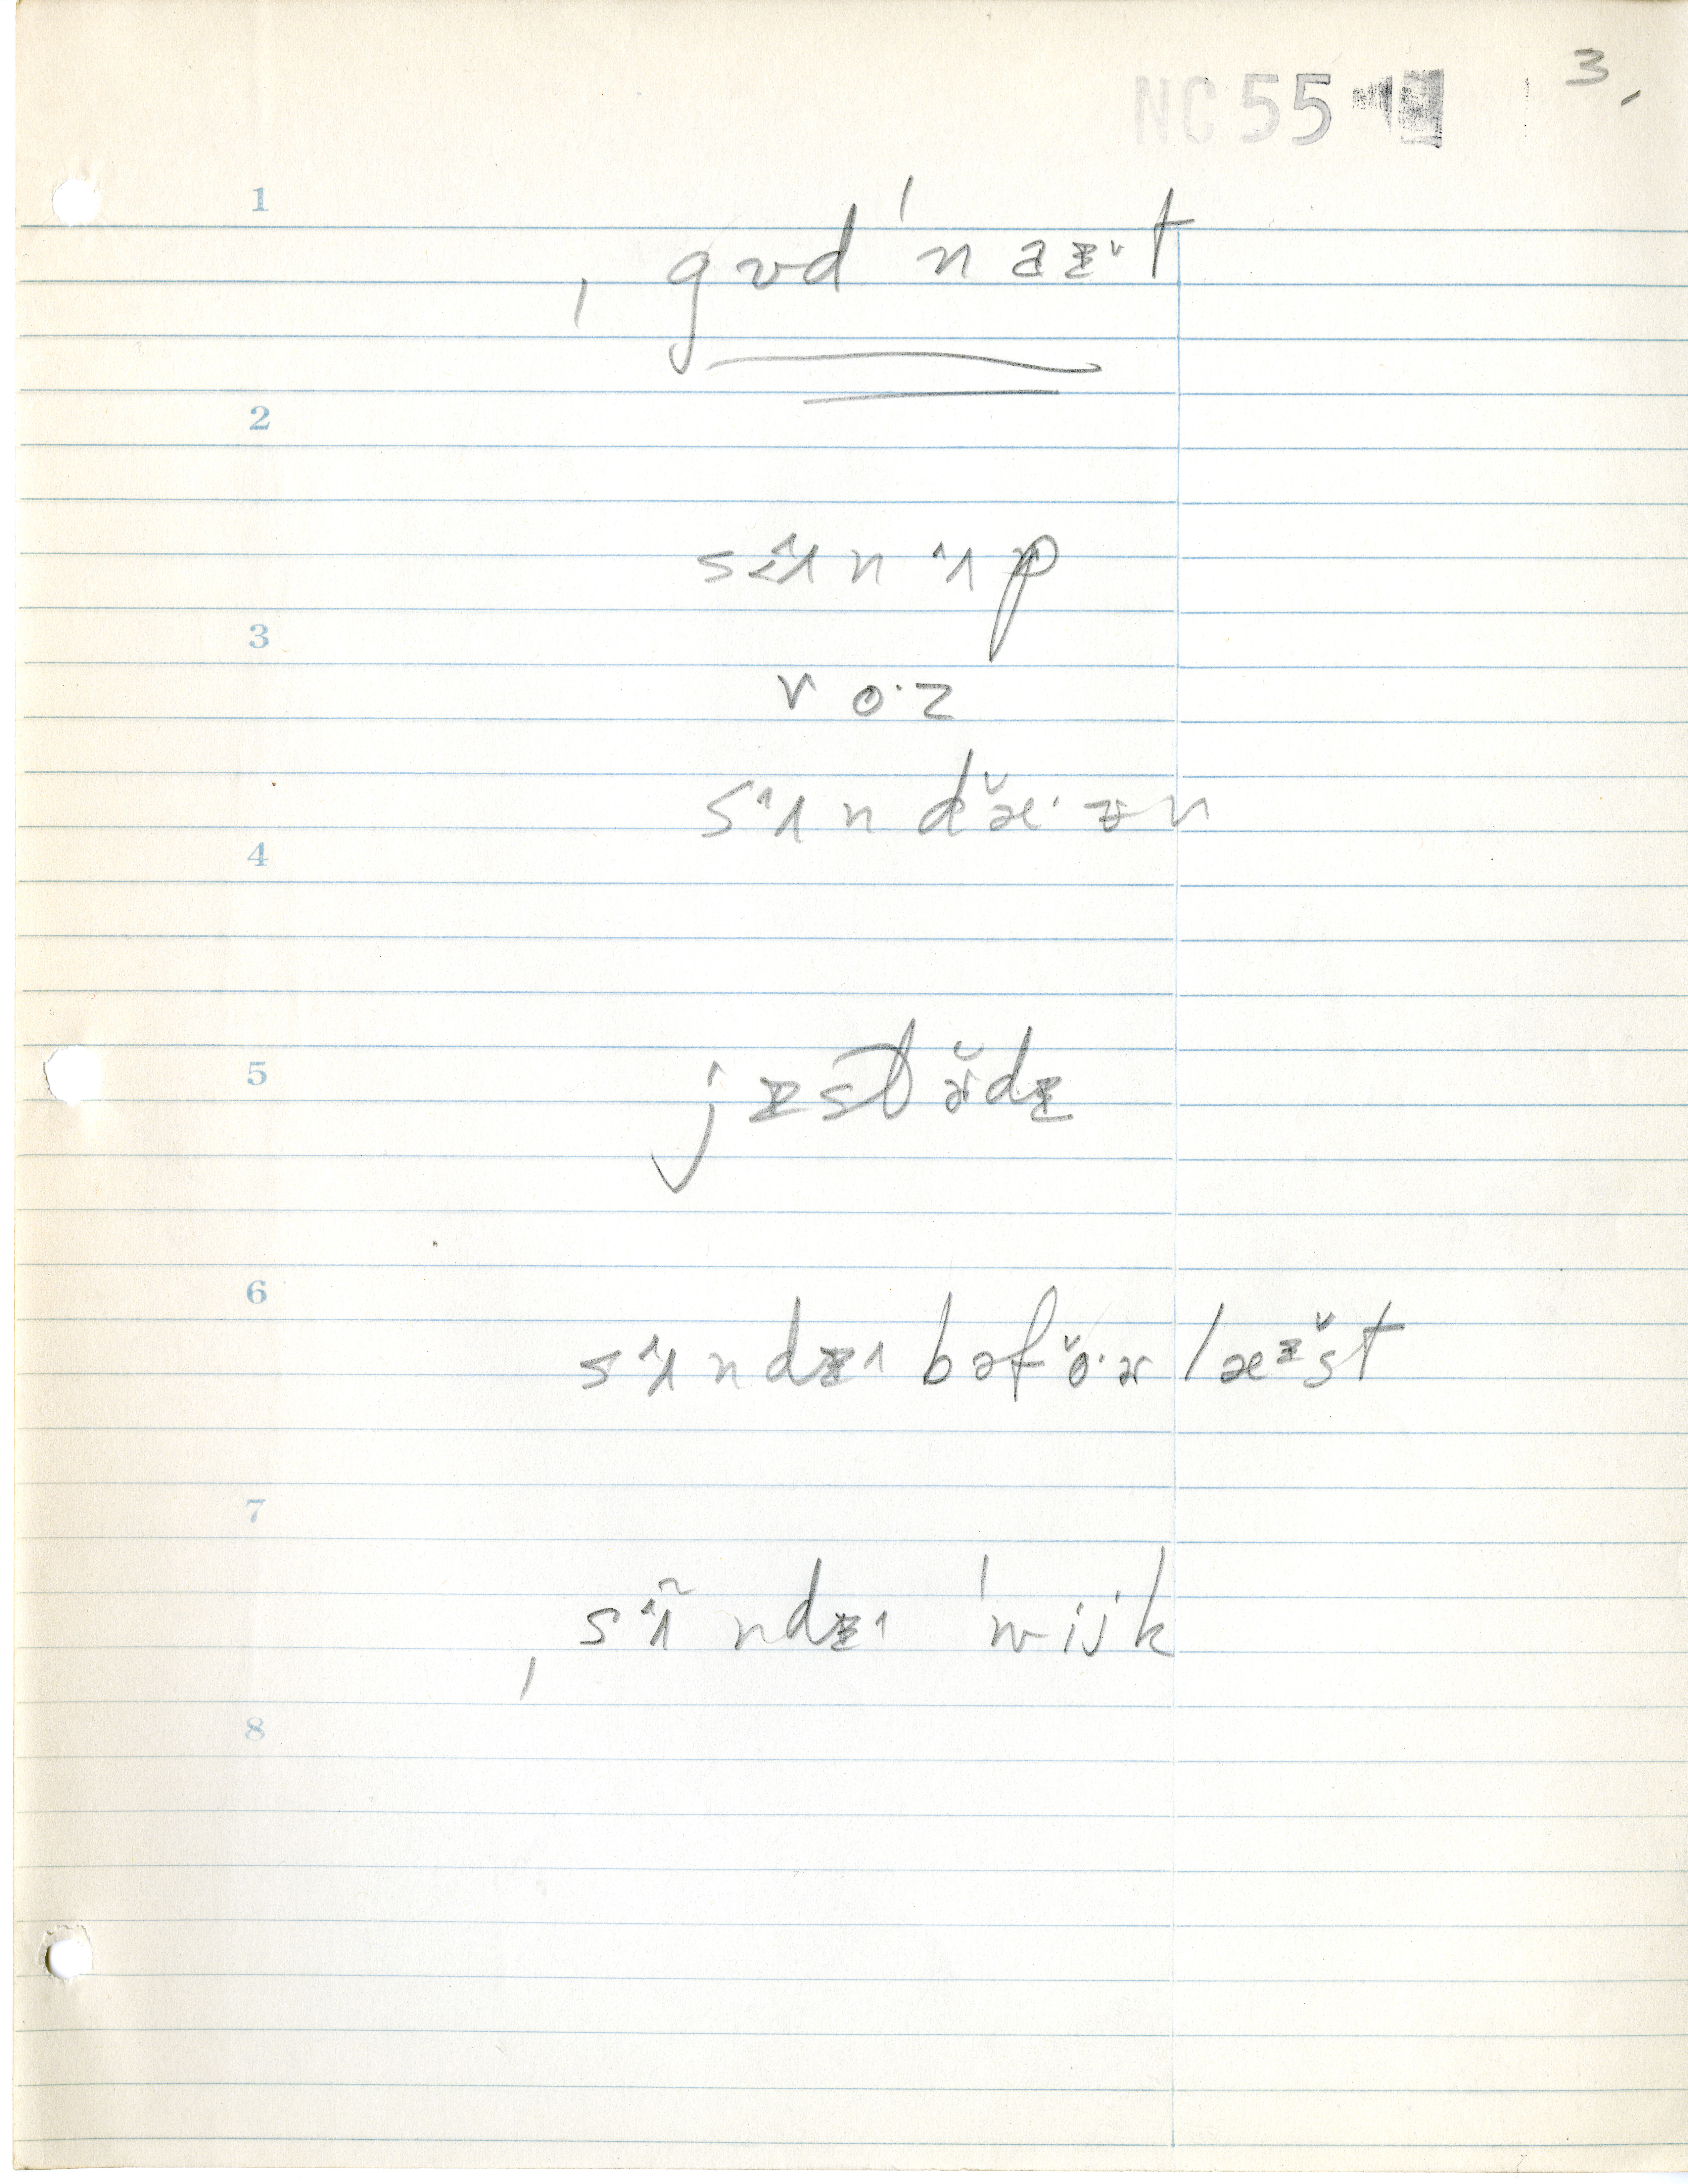 NC 55 3.
1
ˌgʊd ˈnaɪ̆t
2
sʌn ʌp
3
roˑz
sʌn dæ̆ˑɪn
4
5
jɪstɚ̆dɪ
6
sʌndɪ bəfŏˑɚ læɪ̆st
7
ˌsʌ̃ndɪ ˈwijk
8